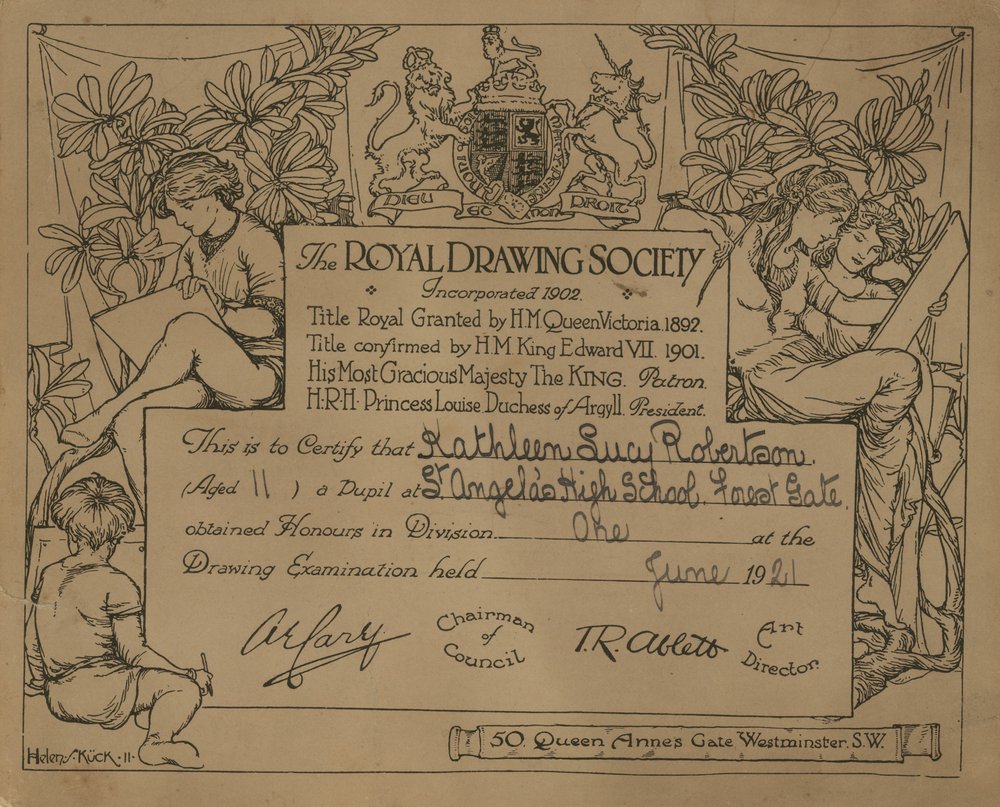 DIEU ET MON DROIT
The ROYAL DRAWING SOCIETY
Incorporated 1902.
Title Royal Granted by H.M. Queen Victoria. 1892.
Title confirmed by H.M. King Edward VII. 1901.
His Most Gracious Majesty The KING. Patron.
H.R.H. Princess Louise Duchess of Argyll. President.
This is to Certify that Kathleen Lucy Robertson.
(Aged 11 ) a Pupil at St Angela's High School. Forest Gate.
obtained Honours in Division One at the
Drawing Examination held June 1921
Chairman of Council
T.R. Ablett
Art Director
Helen S. Kück. 11.
50. Queen Anne's Gate Westminster. S.W.